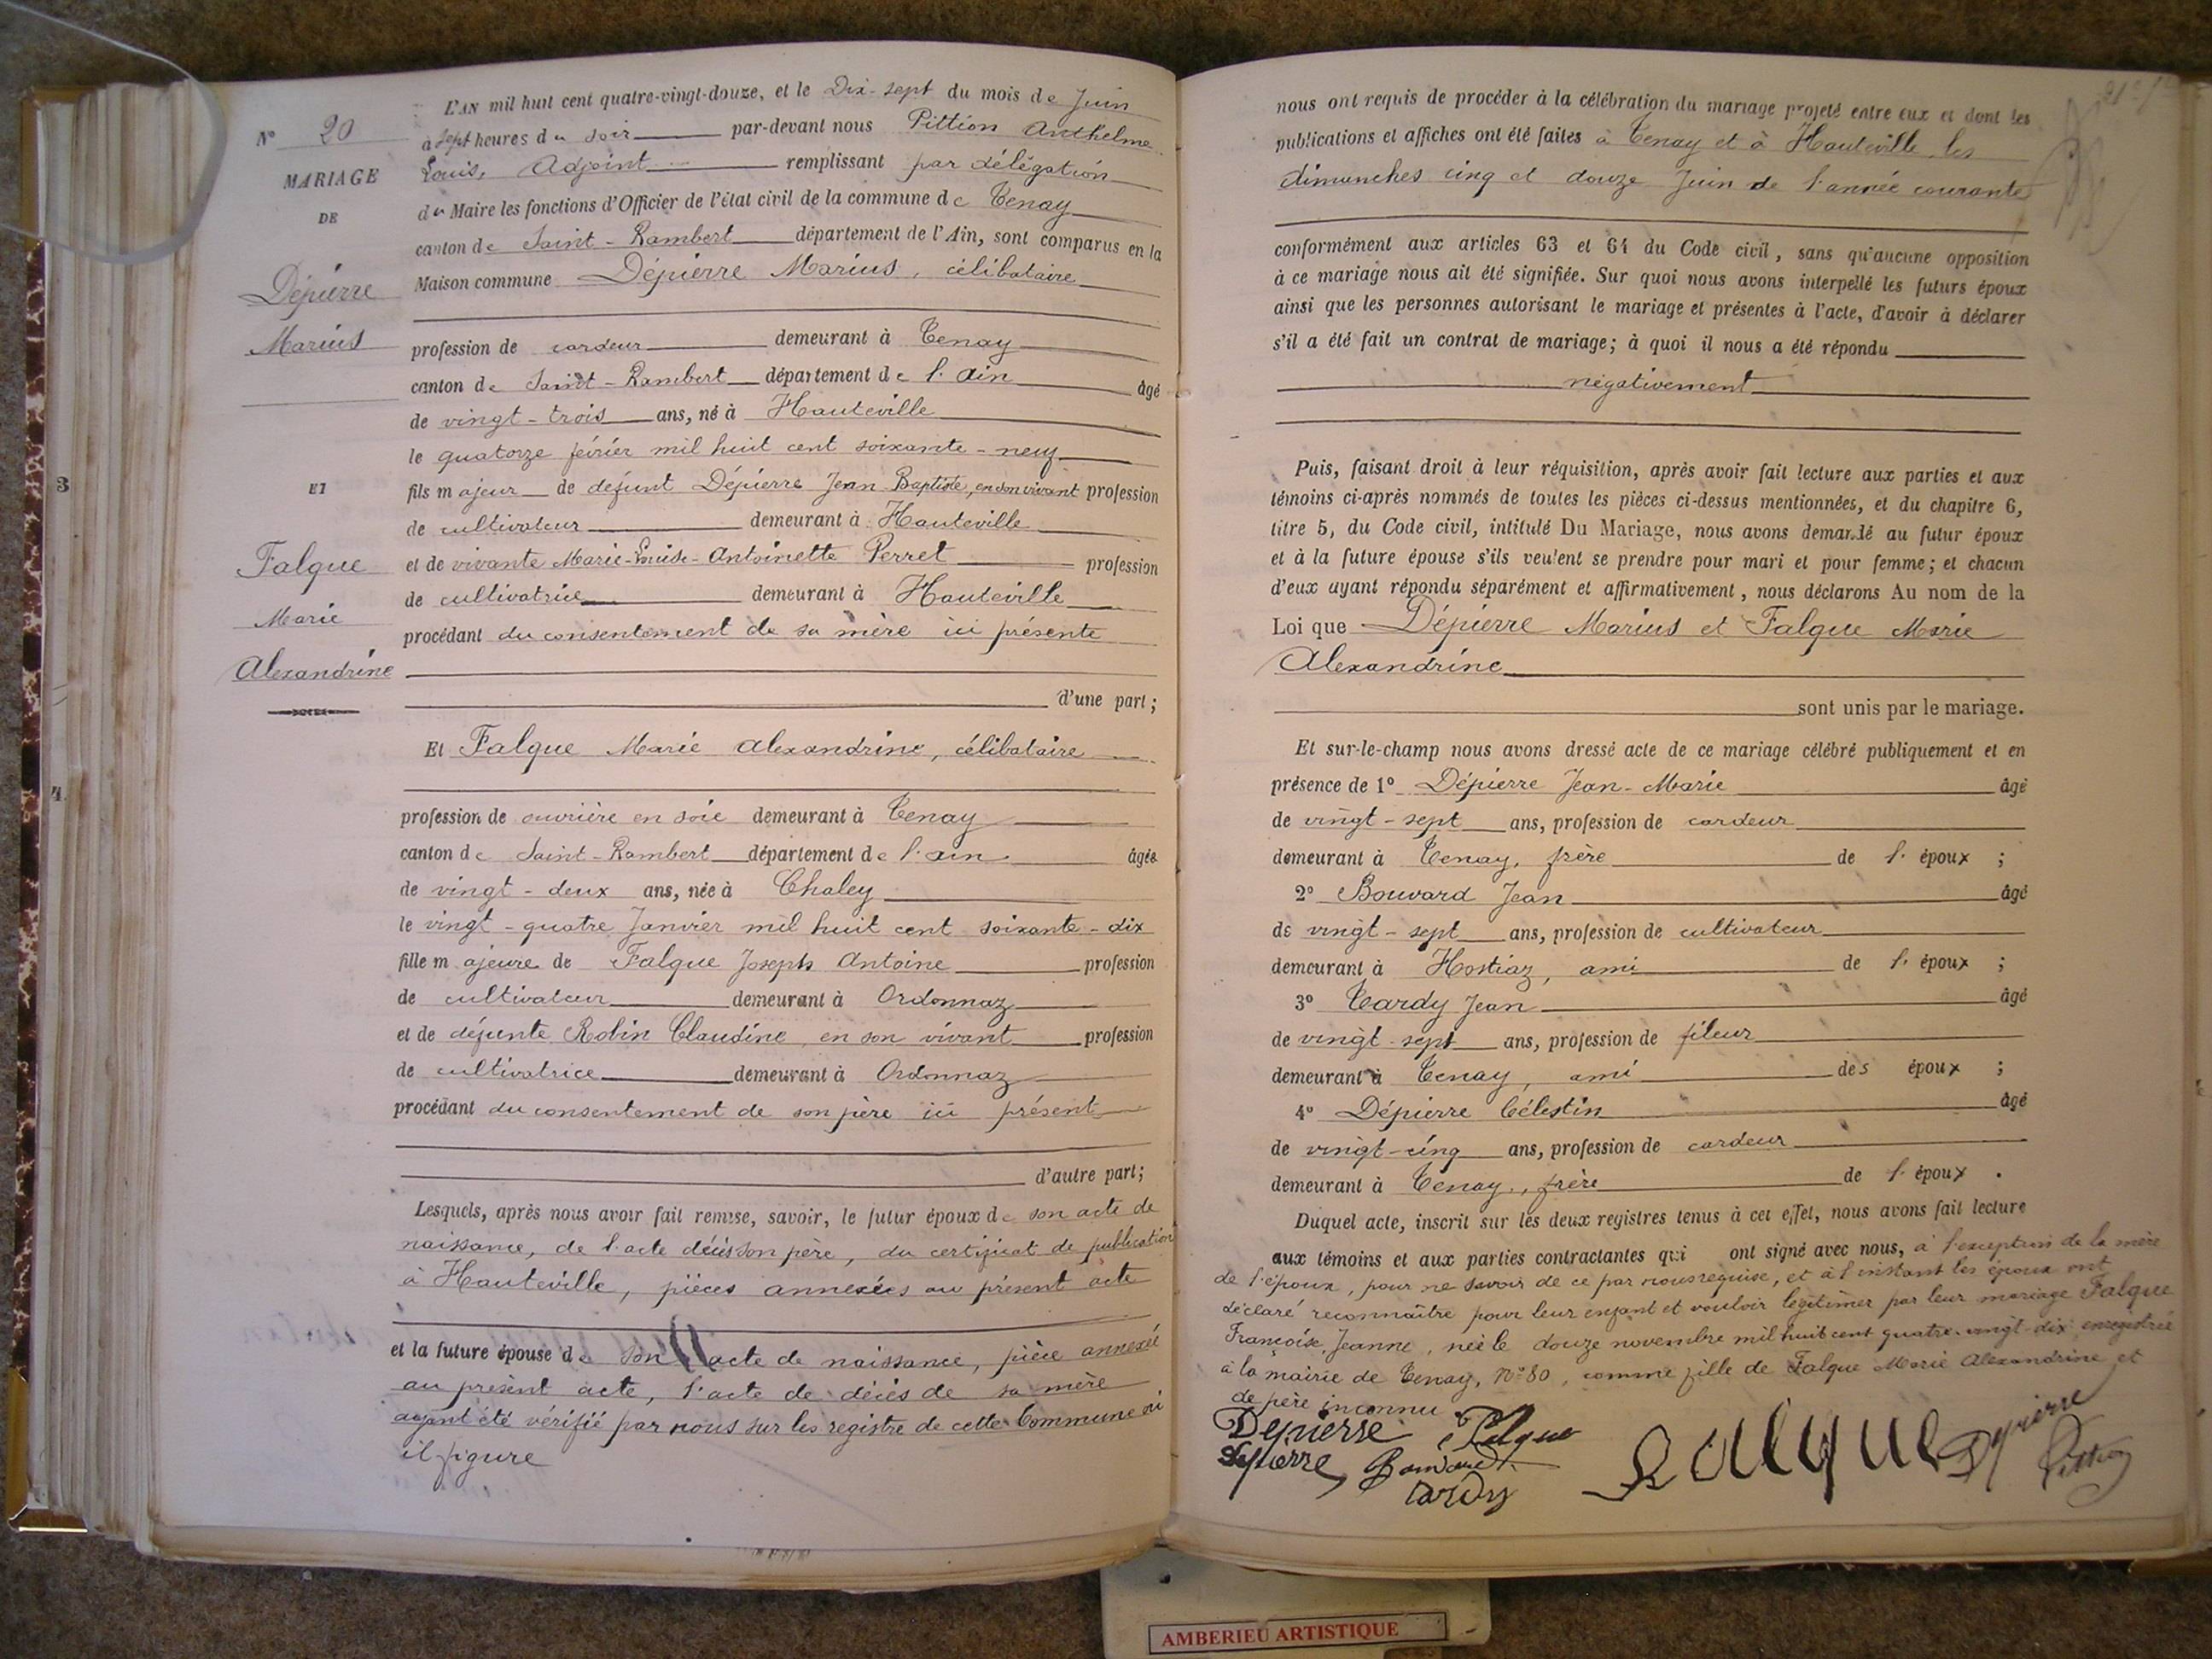 N° 20
MARIAGE
DE
Dépierre
Marius
ET
Falque
Marie
Alexandrine
3
4
L'AN mil huit cent quatre-vingt-douze, et le Dix-sept du mois de Juin
à sept heures du soir par-devant nous Pittion Anthelme
Louis, Adjoint remplissant par délégation
du Maire les fonctions d'Officier de l'état civil de la commune de Tenay
canton de Saint-Rambert département de l'Ain, sont comparus en la
Maison commune Dépierre Marius, célibataire
profession de cardeur demeurant à Tenay
canton de Saint-Rambert département de l'ain âgé
de vingt-trois ans, né à Hauteville
le quatorze février mil huit cent soixante-neuf
fils majeur de défunt Dépierre Jean Baptiste, en son vivant profession
de cultivateur demeurant à Hauteville
et de vivante Marie-Louise-Antoinette Perret profession
de cultivatrice demeurant à Hauteville
procédant du consentement de sa mère ici présente
d'une part;
Et Falque Marie Alexandrine, célibataire
profession de ouvrière en soie demeurant à Tenay
canton de Saint-Rambert département de l'ain âgée
de vingt-deux ans, née à Chaley
le vingt-quatre Janvier mil huit cent soixante-dix
fille majeure de Falque Joseph Antoine profession
de cultivateur demeurant à Ordonnaz
et de défunte Robin Claudine en son vivant profession
de cultivatrice demeurant à Ordonnaz
procédant du consentement de son père ici présent
d'autre part;
Lesquels, après nous avoir fait remise, savoir, le futur époux de son acte de
naissance, de l'acte décès son père, du certificat de publication
à Hauteville, pièces annexées au présent acte
et la future épouse de son acte de naissance, pièce annexée
au présent acte, l'acte de décès de sa mère
ayant été vérifié par nous sur les registre de cette Commune où
il figure
nous ont requis de procéder à la célébration du mariage projeté entre eux et dont les
publications et affiches ont été faites à Tenay et à Hauteville les
dimanches cinq et douze Juin de l'année courante
conformément aux articles 63 et 64 du Code civil, sans qu'aucune opposition
à ce mariage nous ait été signifiée. Sur quoi nous avons interpellé les futurs époux
ainsi que les personnes autorisant le mariage et présentes à l'acte, d'avoir à déclarer
s'il a été fait un contrat de mariage; à quoi il nous a été répondu
négativement
Puis, faisant droit à leur réquisition, après avoir fait lecture aux parties et aux
témoins ci-après nommés de toutes les pièces ci-dessus mentionnées, et du chapitre 6,
titre 5, du Code civil, intitulé Du Mariage, nous avons demandé au futur époux
et à la future épouse s'ils veulent se prendre pour mari et pour femme; et chacun
d'eux ayant répondu séparément et affirmativement, nous déclarons Au nom de la
Loi que Dépierre Marius et Falque Marie
Alexandrine
sont unis par le mariage.
Et sur-le-champ nous avons dressé acte de ce mariage célébré publiquement et en
présence de 1° Dépierre Jean-Marie âgé
de vingt-sept ans, profession de cardeur
demeurant à Tenay, frère de l'époux ;
2° Bouvard Jean âgé
de vingt-sept ans, profession de cultivateur
demeurant à Hostiaz, ami de l'époux ;
3° Tardy Jean âgé
de vingt-sept ans, profession de fileur
demeurant à Tenay, ami des époux ;
4° Dépierre Célestin âgé
de vingt-cinq ans, profession de cardeur
demeurant à Tenay, frère de l'époux .
Duquel acte, inscrit sur les deux registres tenus à cet effet, nous avons fait lecture
aux témoins et aux parties contractantes qui ont signé avec nous, à l'exception de la mère
de l'époux, pour ne savoir de ce par nous requise, et à l'instant les époux ont
déclaré reconnaître pour leur enfant et vouloir légitimer par leur mariage Falque
Françoise Jeanne, née le douze novembre mil huit cent quatre-vingt-dix enregistrée
à la mairie de Tenay, N° 80, comme fille de Falque Marie Alexandrine et
de père inconnu
Depierre Falque Falque Depierre
Depierre Bouvard Pittion
Tardy
AMBERIEU ARTISTIQUE